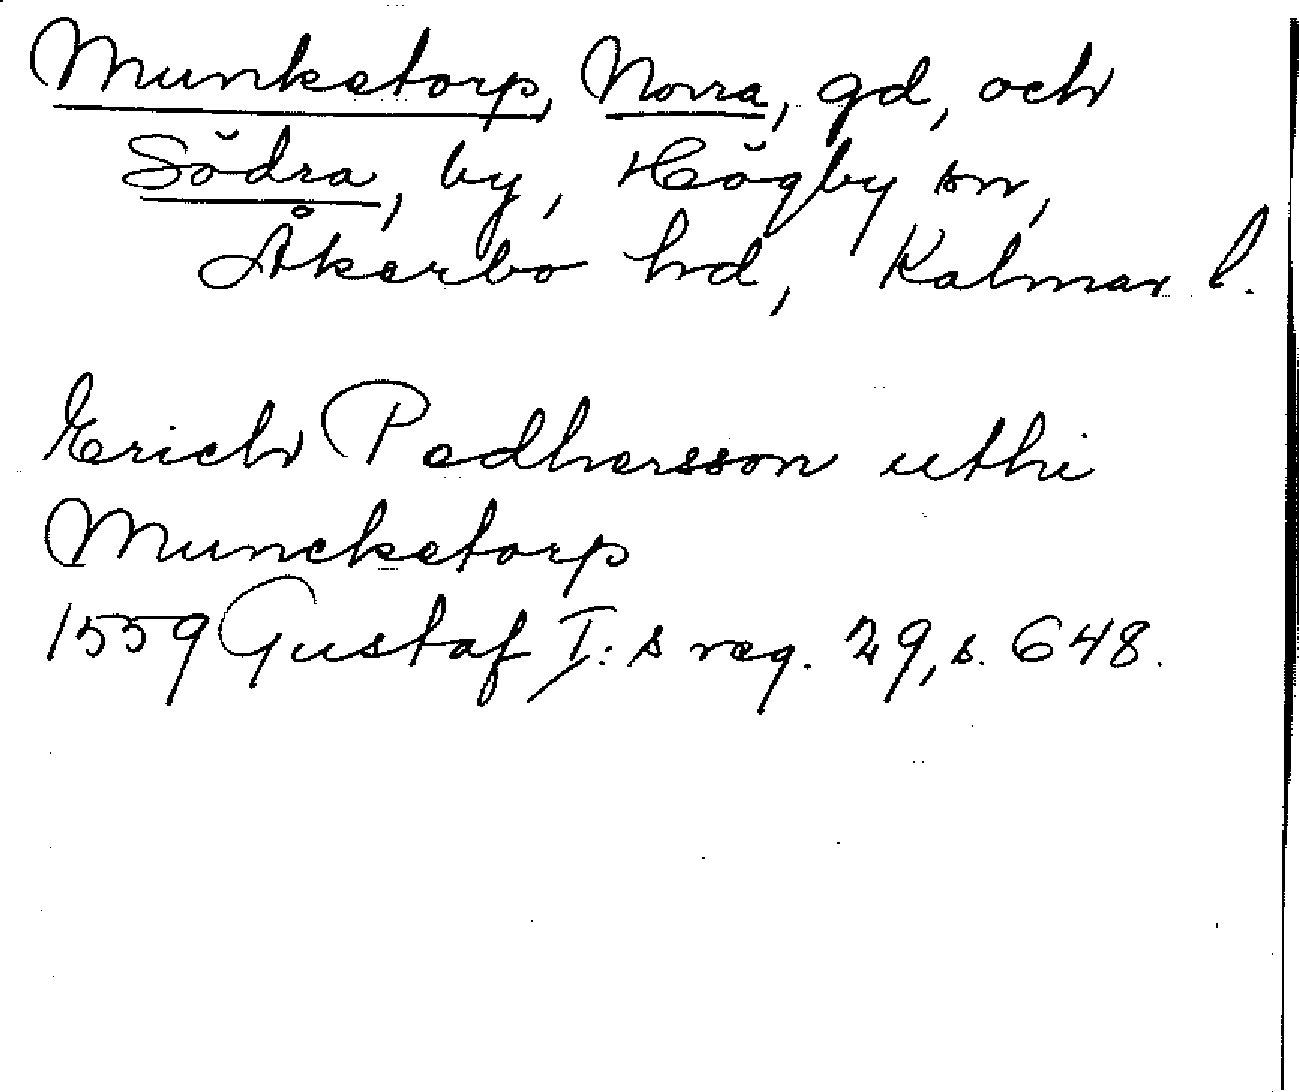 Munketorp, Norra, gd, och
Södra, by, Högby sn,
Åkerbo hd, Kalmar l.
Erich Pedhersson uthi
Muncketorp
1559 Gustaf I:s reg. 29, s. 648.